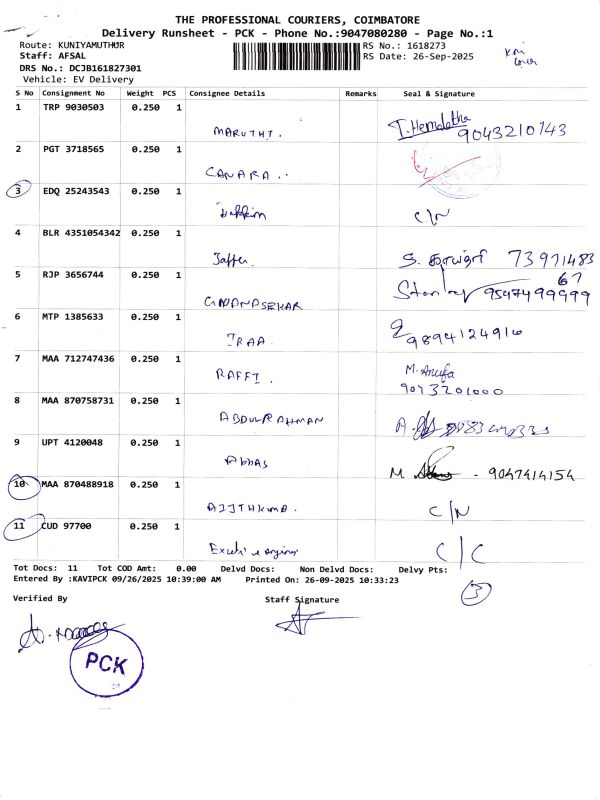 THE PROFESSIONAL COURIERS, COIMBATORE
Delivery Runsheet - PCK - Phone No.:9047080280 - Page No.:1
Route: KUNIYAMUTHUR
RS No.: 1618273
Staff: AFSAL
RS Date: 26-Sep-2025
DRS No.: DCJB161827301
Vehicle: EV Delivery
S No Consignment No Weight PCS Consignee Details Remarks Seal & Signature
1 TRP 9030503 0.250 1
MARUTHI. T. Hemalatha 9043210743
2 PGT 3718565 0.250 1
CANARA..
3 EDQ 25243543 0.250 1
C/N
4 BLR 4351054342 0.250 1
Jaffer. 73971483
67
5 RJP 3656744 0.250 1
GNANASEKAR Stanley 9597499999
6 MTP 1385633 0.250 1
IRAA. 9894124916
7 MAA 712747436 0.250 1
RAFFI. M. Anufa
9073201000
8 MAA 870758731 0.250 1
ABDULRAHMAN
9 UPT 4120048 0.250 1
Abbas M. - 9047414154
10 MAA 870488918 0.250 1
AJITHKUMA. C/N
11 CUD 97700 0.250 1
C/C
Tot Docs: 11 Tot COD Amt: 0.00 Delvd Docs: Non Delvd Docs: Delvy Pts:
Entered By :KAVIPCK 09/26/2025 10:39:00 AM Printed On: 26-09-2025 10:33:23
3
Verified By Staff Signature
PCK